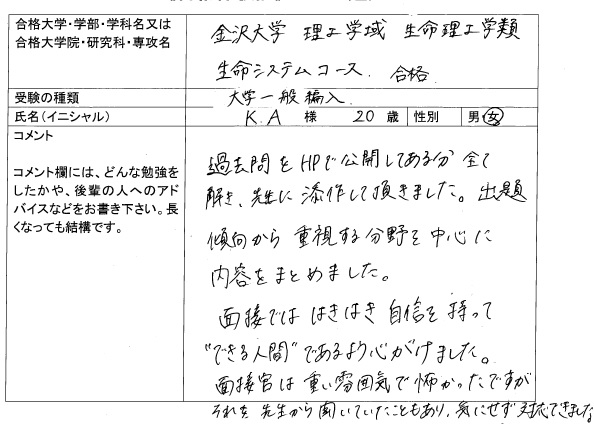 合格大学・学部・学科名又は
合格大学院・研究科・専攻名
金沢大学 理工学域 生命理工学類
生命システムコース 合格
受験の種類
大学一般編入
氏名(イニシャル)
K.A 様 20 歳 性別 男・女
コメント
コメント欄には、どんな勉強を
したかや、後輩の人へのアド
バイスなどをお書き下さい。長
くなっても結構です。
過去問をHPで公開してある分全て
解き、先生に添作して頂きました。出題
傾向から重視する分野を中心に
内容をまとめました。
面接でははきはき自信を持って
"できる人間"であるよう心がけました。
面接官は重い雰囲気で怖かったですが
それも先生から聞いていたこともあり、気にせず対応できました